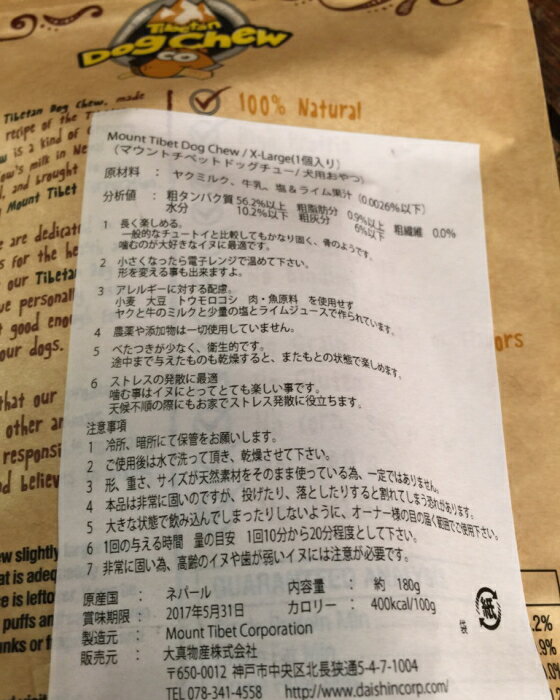 Tibetan
Dog Chew
100% Natural
Tibetan Dog Chew, made
recipe of the
is a kind of
ow's milk in Ne
and brought
Mount Tibet
e are dedicat
s for the he
our Tibetan
ve personall
t good enou
our dogs.
that our
other an
responsi
d believ
ew slightly
at is adeq
ce is lefto
puffs an
nks or f
ors
Mount Tibet Dog Chew / X-Large(1個入り)
（マウントチベットドッグチュー/ 犬用おやつ）
原材料 ： ヤクミルク、牛乳、塩&ライム果汁（0.0026%以下）
分析値 ： 粗タンパク質 56.2%以上 粗脂肪分 0.9%以上 粗繊維 0.0%
水分 10.2%以下 粗灰分 6%以下
1 長く楽しめる。
一般的なチュートイと比較してもかなり固く、骨のようです。
噛むのが大好きなイヌに最適です。
2 小さくなったら電子レンジで温めて下さい。
形を変える事も出来ますよ。
3 アレルギーに対する配慮。
小麦 大豆 トウモロコシ 肉・魚原料 を使用せず
ヤクと牛のミルクと少量の塩とライムジュースで作られています。
4 農薬や添加物は一切使用していません。
5 べたつきが少なく、衛生的です。
途中まで与えたものも乾燥すると、またもとの状態で楽しめます。
6 ストレスの発散に最適
噛む事はイヌにとってとても楽しい事です。
天候不順の際にもお家でストレス発散に役立ちます。
注意事項
1 冷所、暗所にて保管をお願いします。
2 ご使用後は水で洗って頂き、乾燥させて下さい。
3 形、重さ、サイズが天然素材をそのまま使っている為、一定ではありません。
4 本品は非常に固いのですが、投げたり、落としたりすると割れてしまう恐れがあります。
5 大きな状態で飲み込んでしまったりしないように、オーナー様の目の届く範囲でご使用下さい。
6 1回の与える時間 量の目安 1回10分から20分程度として下さい。
7 非常に固い為、高齢のイヌや歯が弱いイヌには注意が必要です。
原産国 ： ネパール 内容量 ： 約 180g
賞味期限 ： 2017年5月31日 カロリー ： 400kcal/100g
製造元 ： Mount Tibet Corporation
販売元 ： 大真物産株式会社
〒650-0012 神戸市中央区北長狭通5-4-7-1004
TEL 078-341-4558 http://www.daishincorp.com/
紙
袋
.2%
.9%